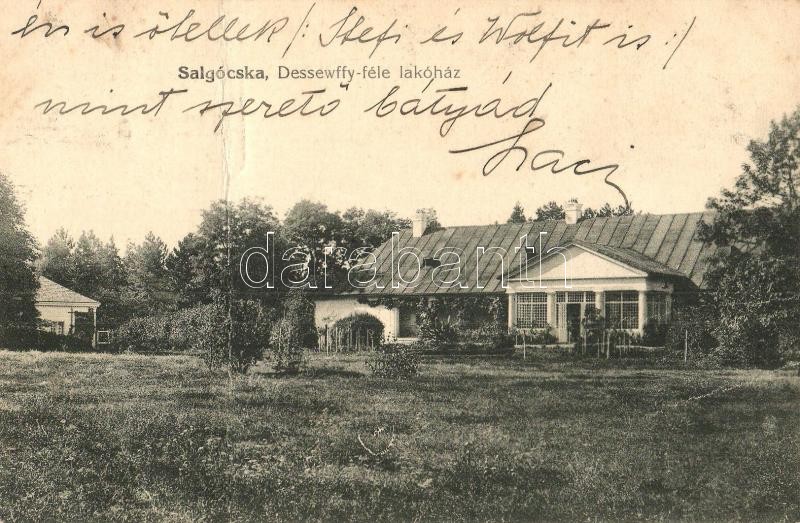 én is ölellek /: Stefi és Wolfit is :/
Salgócska, Dessewffy-féle lakóház
mint szerető bátyád
Laci
darabanth